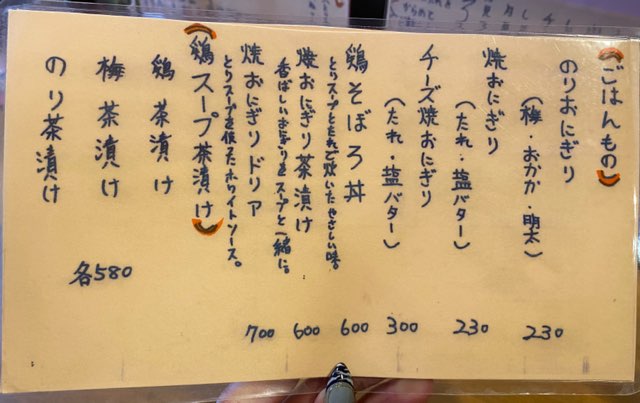 (ごはんもの)
のりおにぎり
(梅・おかか・明太) 230
焼おにぎり
(たれ・塩バター) 230
チーズ焼おにぎり
(たれ・塩バター) 300
鶏そぼろ丼 600
とりスープとたれで炊いたやさしい味。
焼おにぎり茶漬け 600
香ばしいおにぎりをスープと一緒に。
焼おにぎりドリア 700
とりスープを使ったホワイトソース。
(鶏スープ茶漬け)
鶏茶漬け
梅茶漬け
のり茶漬け
各580